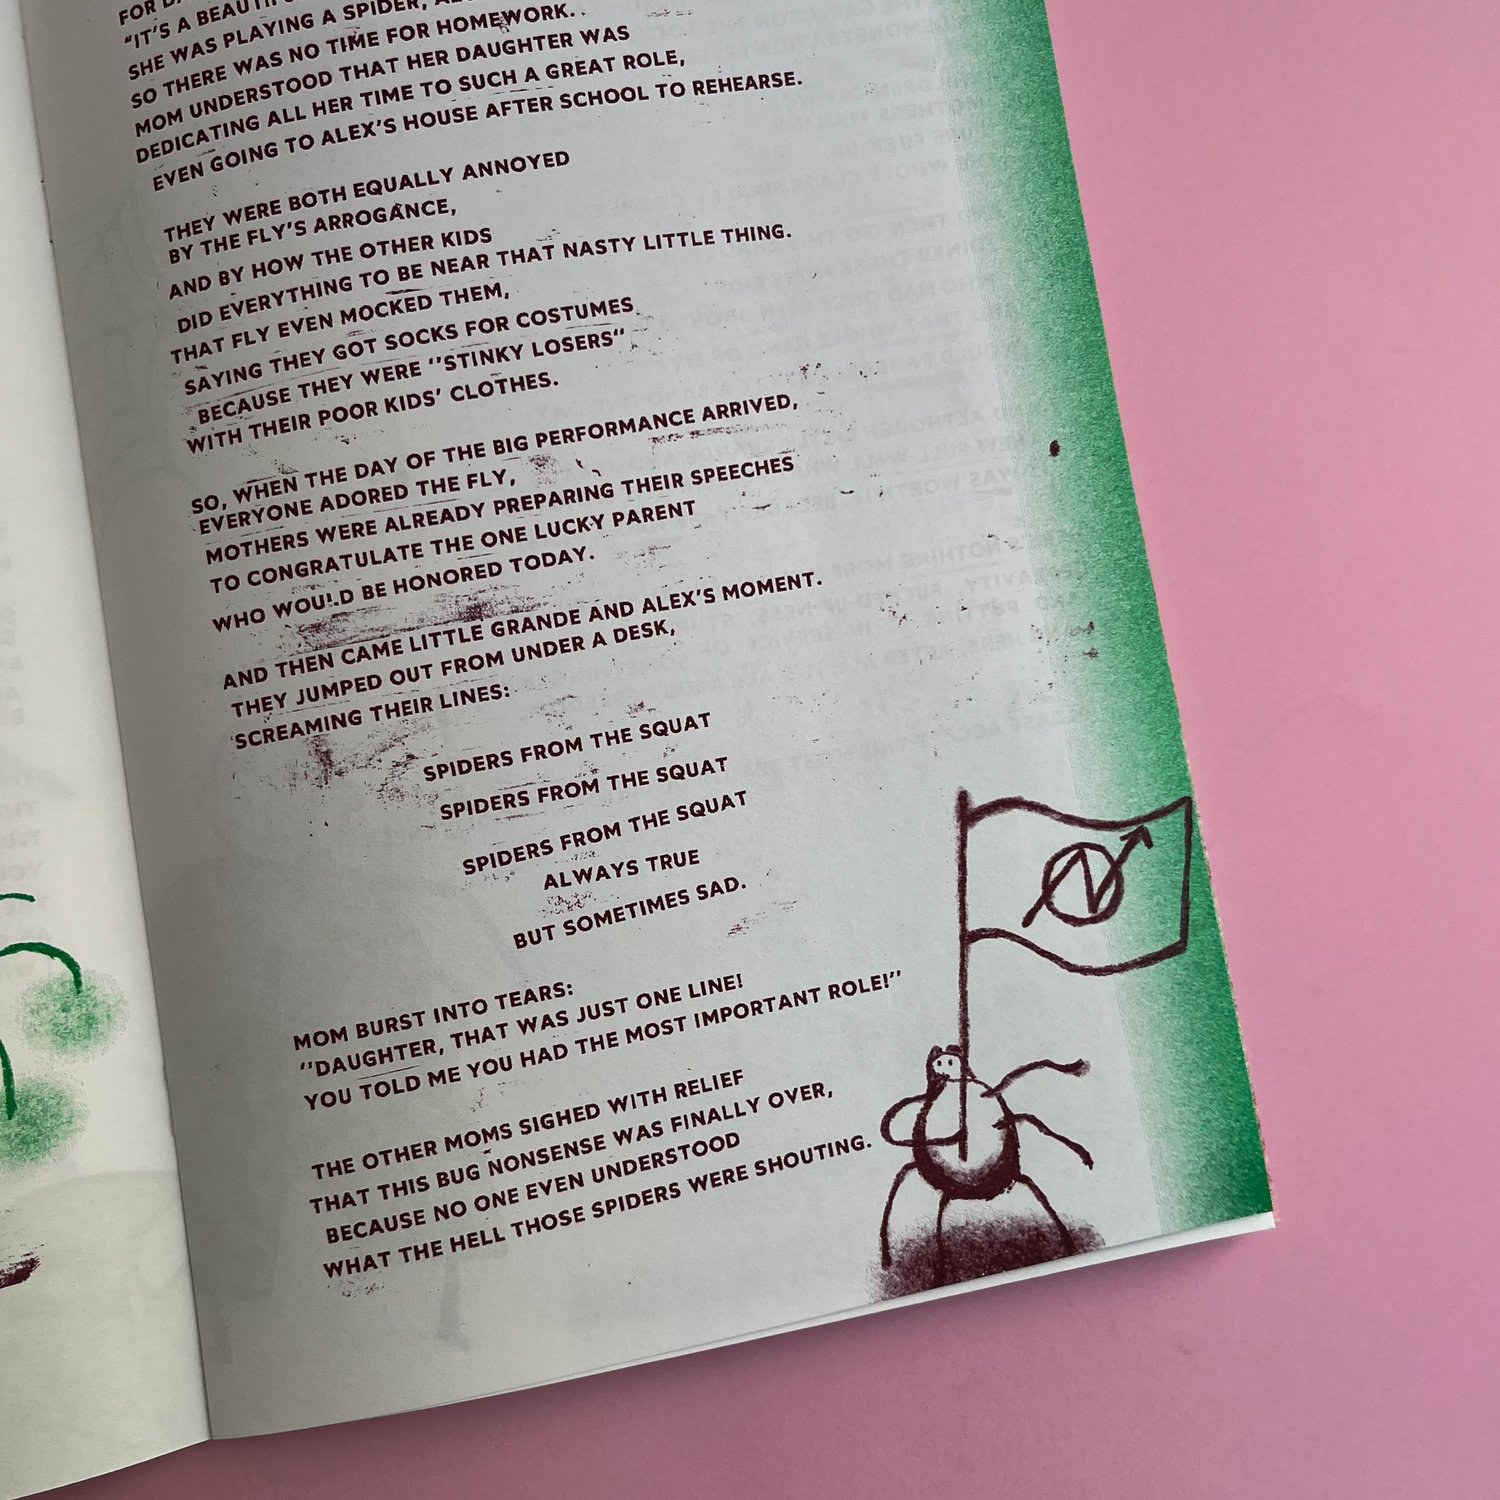 FOR
"IT'S A
SHE WAS PLAYING A SPIDER,
SO THERE WAS NO TIME FOR HOMEWORK.
MOM UNDERSTOOD THAT HER DAUGHTER WAS
DEDICATING ALL HER TIME TO SUCH A GREAT ROLE,
EVEN GOING TO ALEX'S HOUSE AFTER SCHOOL TO REHEARSE.
THEY WERE BOTH EQUALLY ANNOYED
BY THE FLY'S ARROGANCE,
AND BY HOW THE OTHER KIDS
DID EVERYTHING TO BE NEAR THAT NASTY LITTLE THING.
THAT FLY EVEN MOCKED THEM,
SAYING THEY GOT SOCKS FOR COSTUMES
BECAUSE THEY WERE "STINKY LOSERS"
WITH THEIR POOR KIDS' CLOTHES.
SO, WHEN THE DAY OF THE BIG PERFORMANCE ARRIVED,
EVERYONE ADORED THE FLY,
MOTHERS WERE ALREADY PREPARING THEIR SPEECHES
TO CONGRATULATE THE ONE LUCKY PARENT
WHO WOULD BE HONORED TODAY.
AND THEN CAME LITTLE GRANDE AND ALEX'S MOMENT.
THEY JUMPED OUT FROM UNDER A DESK,
SCREAMING THEIR LINES:
SPIDERS FROM THE SQUAT
SPIDERS FROM THE SQUAT
SPIDERS FROM THE SQUAT
ALWAYS TRUE
BUT SOMETIMES SAD.
MOM BURST INTO TEARS:
"DAUGHTER, THAT WAS JUST ONE LINE!
YOU TOLD ME YOU HAD THE MOST IMPORTANT ROLE!"
THE OTHER MOMS SIGHED WITH RELIEF
THAT THIS BUG NONSENSE WAS FINALLY OVER,
BECAUSE NO ONE EVEN UNDERSTOOD
WHAT THE HELL THOSE SPIDERS WERE SHOUTING.